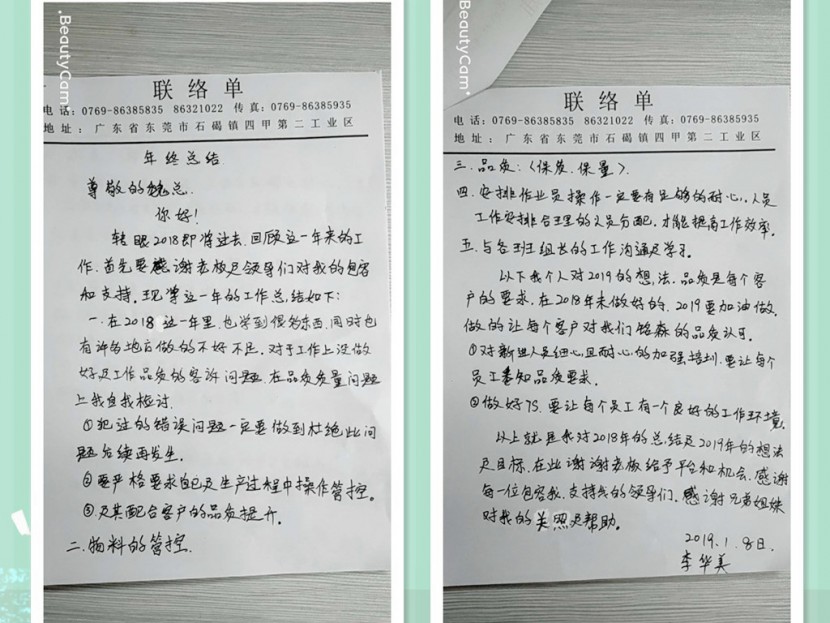 BeautyCam
联络单
电话:0769-86385835 86321022 传真:0769-86385935
地址:广东省东莞市石碣镇四甲第二工业区
年终总结
尊敬的魏总.
你好!
转眼2018即将过去.回顾这一年来的工
作.首先要感谢老板及领导们对我的包容
和支持.现将这一年的工作总结如下:
一.在2018这一年里.也学到很多东西,同时也
有许多地方做的不好不足.对于工作上没做
好及工作品质的客诉问题.在品质质量问题
上我自我检讨.
①犯过的错误问题一定要做到杜绝.此问
题后续再发生.
②要严格要求自己及生产过程中操作管控.
③及其配合客户的品质提升.
二.物料的管控.
BeautyCam
联络单
电话:0769-86385835 86321022 传真:0769-86385935
地址:广东省东莞市石碣镇四甲第二工业区
三.品质:(保质.保量).
四.安排作业员操作一定要有足够的耐心.人员
工作安排合理的人员分配.才能提高工作效率。
五.与各班组长的工作沟通及学习.
以下我个人对2019的想法.品质是每个客
户的要求.在2018年未做好的.2019要加油做.
做的让每个客户对我们铭森的品质认可.
①对新进人员细心且耐心的加强培训.要让每个
员工知品质要求.
②做好7S.要让每个员工有一个良好的工作环境.
以上就是我对2018年的总结及2019年的想法
及目标.在此谢谢老板给予平台和机会.感谢
每一位包容我.支持我的领导们.感谢兄弟姐妹
对我的关照及帮助。
2019.1.8日.
李华美